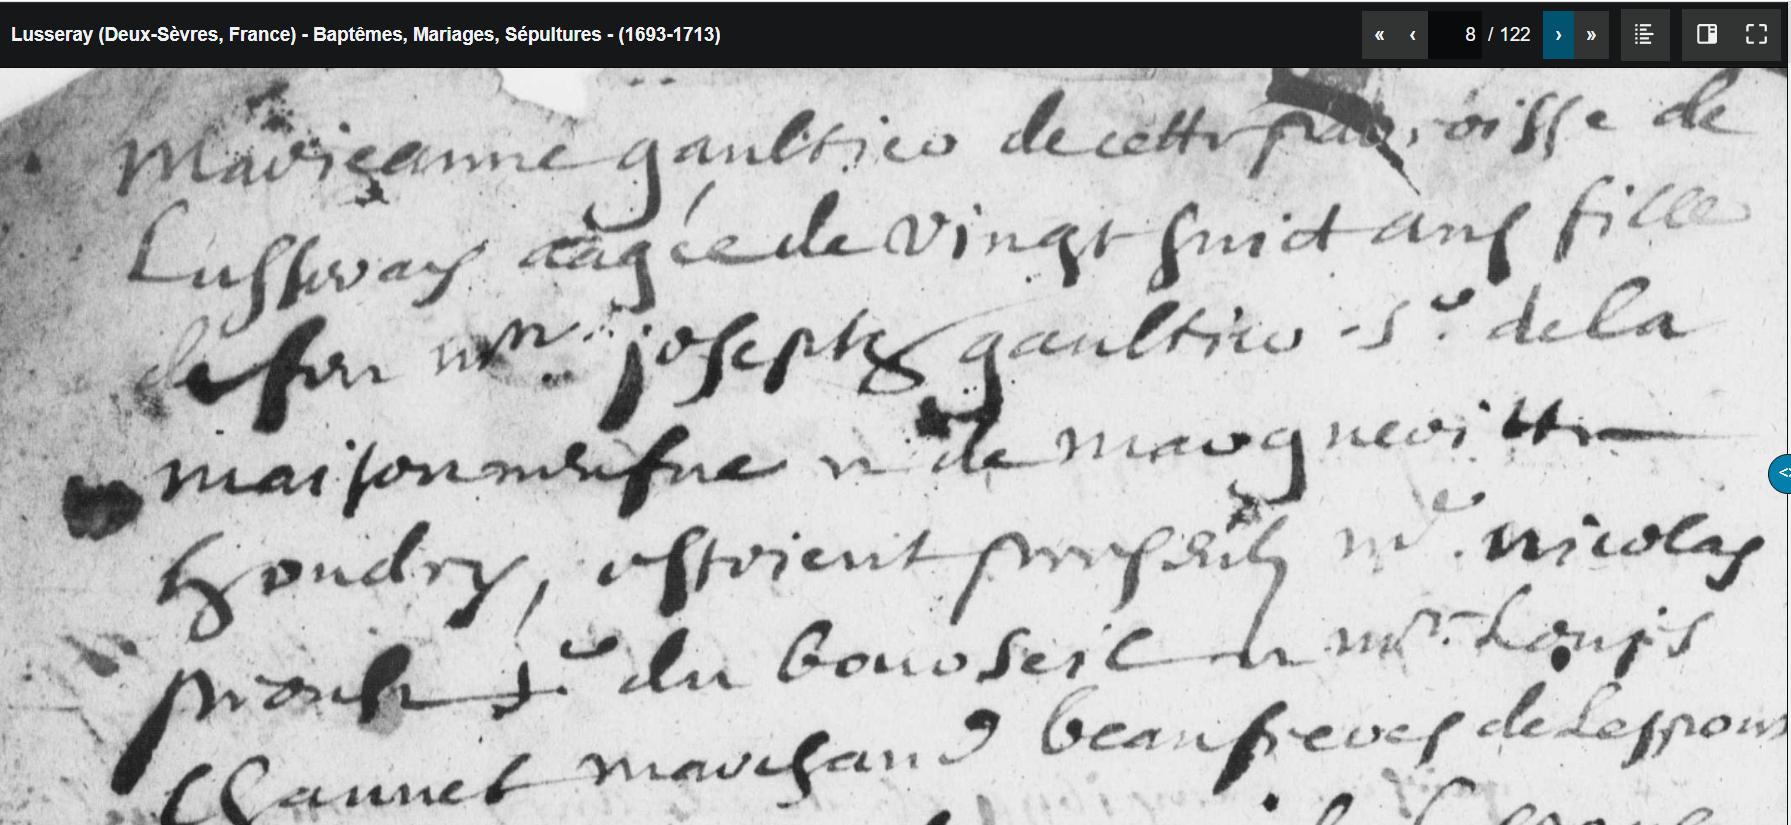 Lusseray (Deux-Sèvres, France) - Baptêmes, Mariages, Sépultures - (1693-1713)
« ‹ 8 / 122 › »
Marieanne gaultier de cette parroisse de
Lusseray aagée de vingt huict ans fille
de feu mr. joseph gaultier sr. de la
maisonneufve et de margueritte
houdry, estoient presents mr. nicolas
sr. du bourseil et mr. Louis
Channet marchand beaufreres de Lespouse